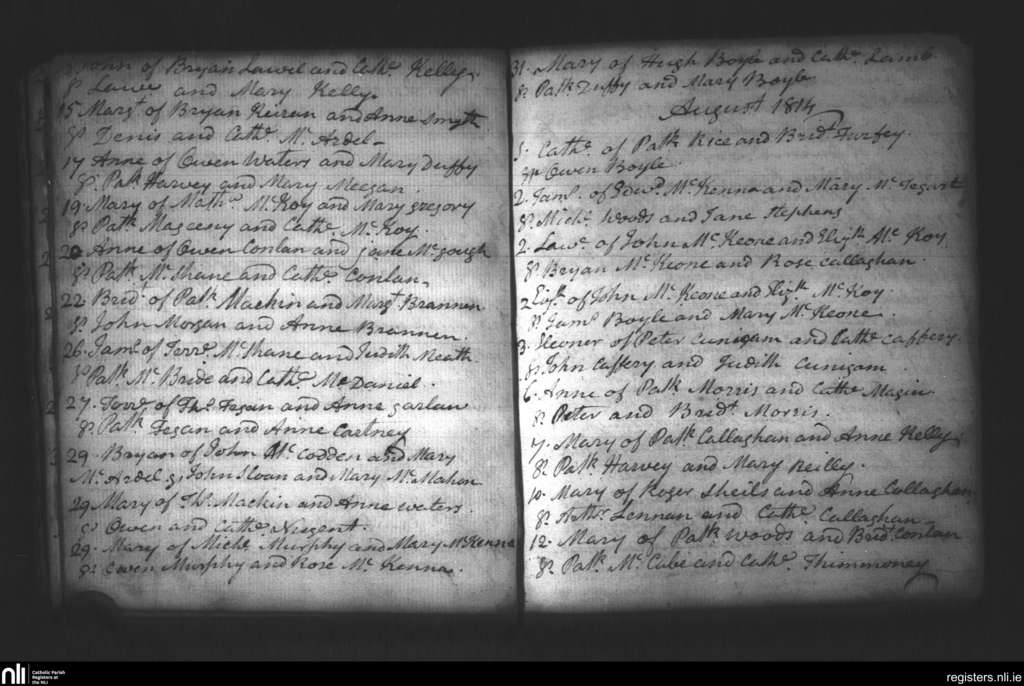 John of Bryan Lawel and Cathe. Kelly
Sp. Lawe and Mary Kelly
15 Margt. of Bryan Keiran and Anne Smyth
Sp. Denis and Cathe. Mc. Ardel
17 Anne of Owen Waters and Mary Duffy
Sp. Patk. Harvey and Mary Meegan
19. Mary of Mathw. Mc. Koy and Mary gregory
Sp. Patk. and Cathe. Mc. Koy.
20 Anne of Owen Conlan and jane Mc. gough
Sp. Patk. Mc. Shane and Cathe. Conlan
22 Brid. of Patk. Mackin and Margt. Brannen
Sp. John Morgan and Anne Brannen.
26. Jams. of Terre. Mc. Shane and Judith Meath
Sp. Patk. Mc. Bride and Cathe. Mc Daniel.
27. Terre. of Ths. Fegan and Anne garlan
Sp. Patk. Fegan and Anne Cartney
29. Bryan of John Mc. Codden and Mary
Mc. Ardel Sp. John Sloan and Mary Mc. Mahon
29 Mary of Ths. Mackin and Anne Waters.
Sp. Owen and Cathe. Nugent.
29. Mary of Michl. Murphy and Mary Mc. Kenna
Sp. Owen Murphy and Rose Mc. Kenna.
31. Mary of Hugh Boyle and Cathe. Lamb
Sp. Patk. Duffy and Mary Boyle
August 1814
1. Cathe. of Patk. Rice and Bridt. Furfey.
Sp. Owen Boyle
2. Jams. of Edwd. Mc. Kenna and Mary Mc. Tegart
Sp. Michl. Woods and Jane Stephens
2. Lawe. of John Mc. Keone and Elizth. Mc. Koy
Sp. Bryan Mc. Keone and Rose Callaghan.
2 of John Mc. Keone and Mc. Koy
Sp. Jams. Boyle and Mary Mc. Keone.
3. Elenor of Peter Cunigam and Cathe. Caffery.
Sp. John Caffery and Judith Cunigam
6. Anne of Patk. Morris and Cathe. Magin
Sp. Peter and Bridt. Morris.
7. Mary of Patk. Callaghan and Anne Kelly
Sp. Patk. Harvey and Mary Reilly.
10. Mary of Roger Sheils and Anne Callaghan
Sp. Arthr. Lennan and Cathe. Callaghan
12. Mary of Patk. Woods and Bridt. Conlan
Sp. Patk. Mc. Cabe and Cathe. Thimmoney
nli Catholic Parish Registers at the NLI
registers.nli.ie